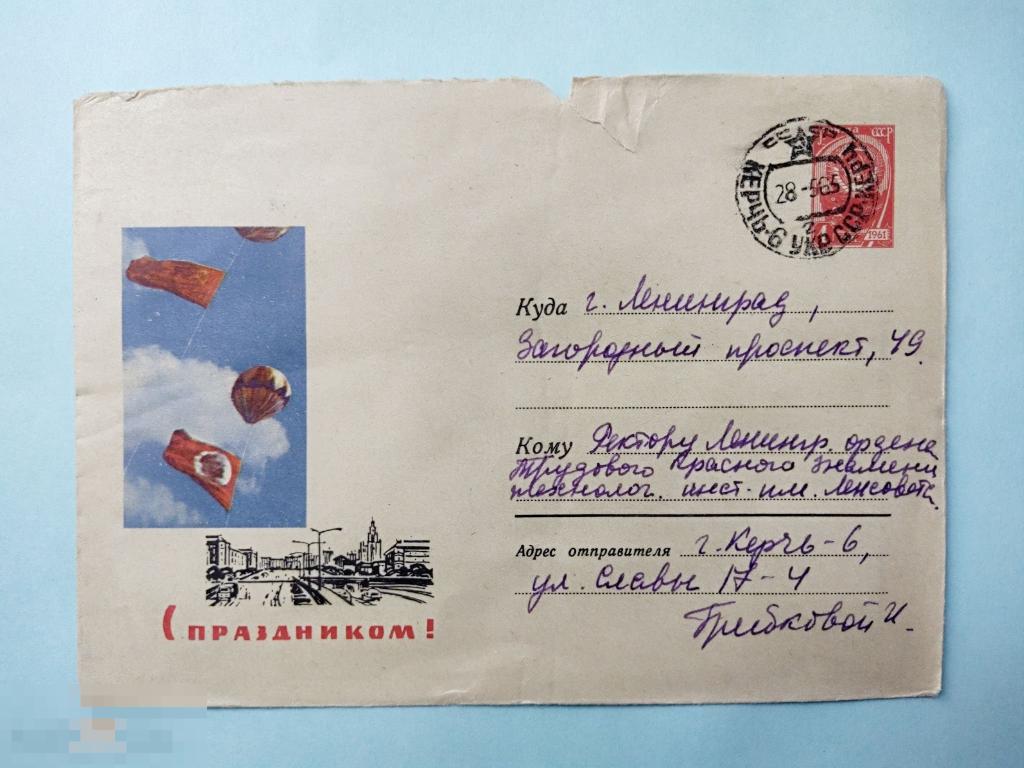 СССР
КЕРЧЬ-9 УКР ССР КЕРЧ
28-565
СССР
1961
Куда г. Ленинград,
Загородный проспект, 49
Кому Ректору Ленингр. ордена
Трудового Красного Знамени
технолог. инст. им. Ленсовета.
Адрес отправителя г. Керчь-6,
ул. Славы 17-4
Грибковой Н.
С ПРАЗДНИКОМ!